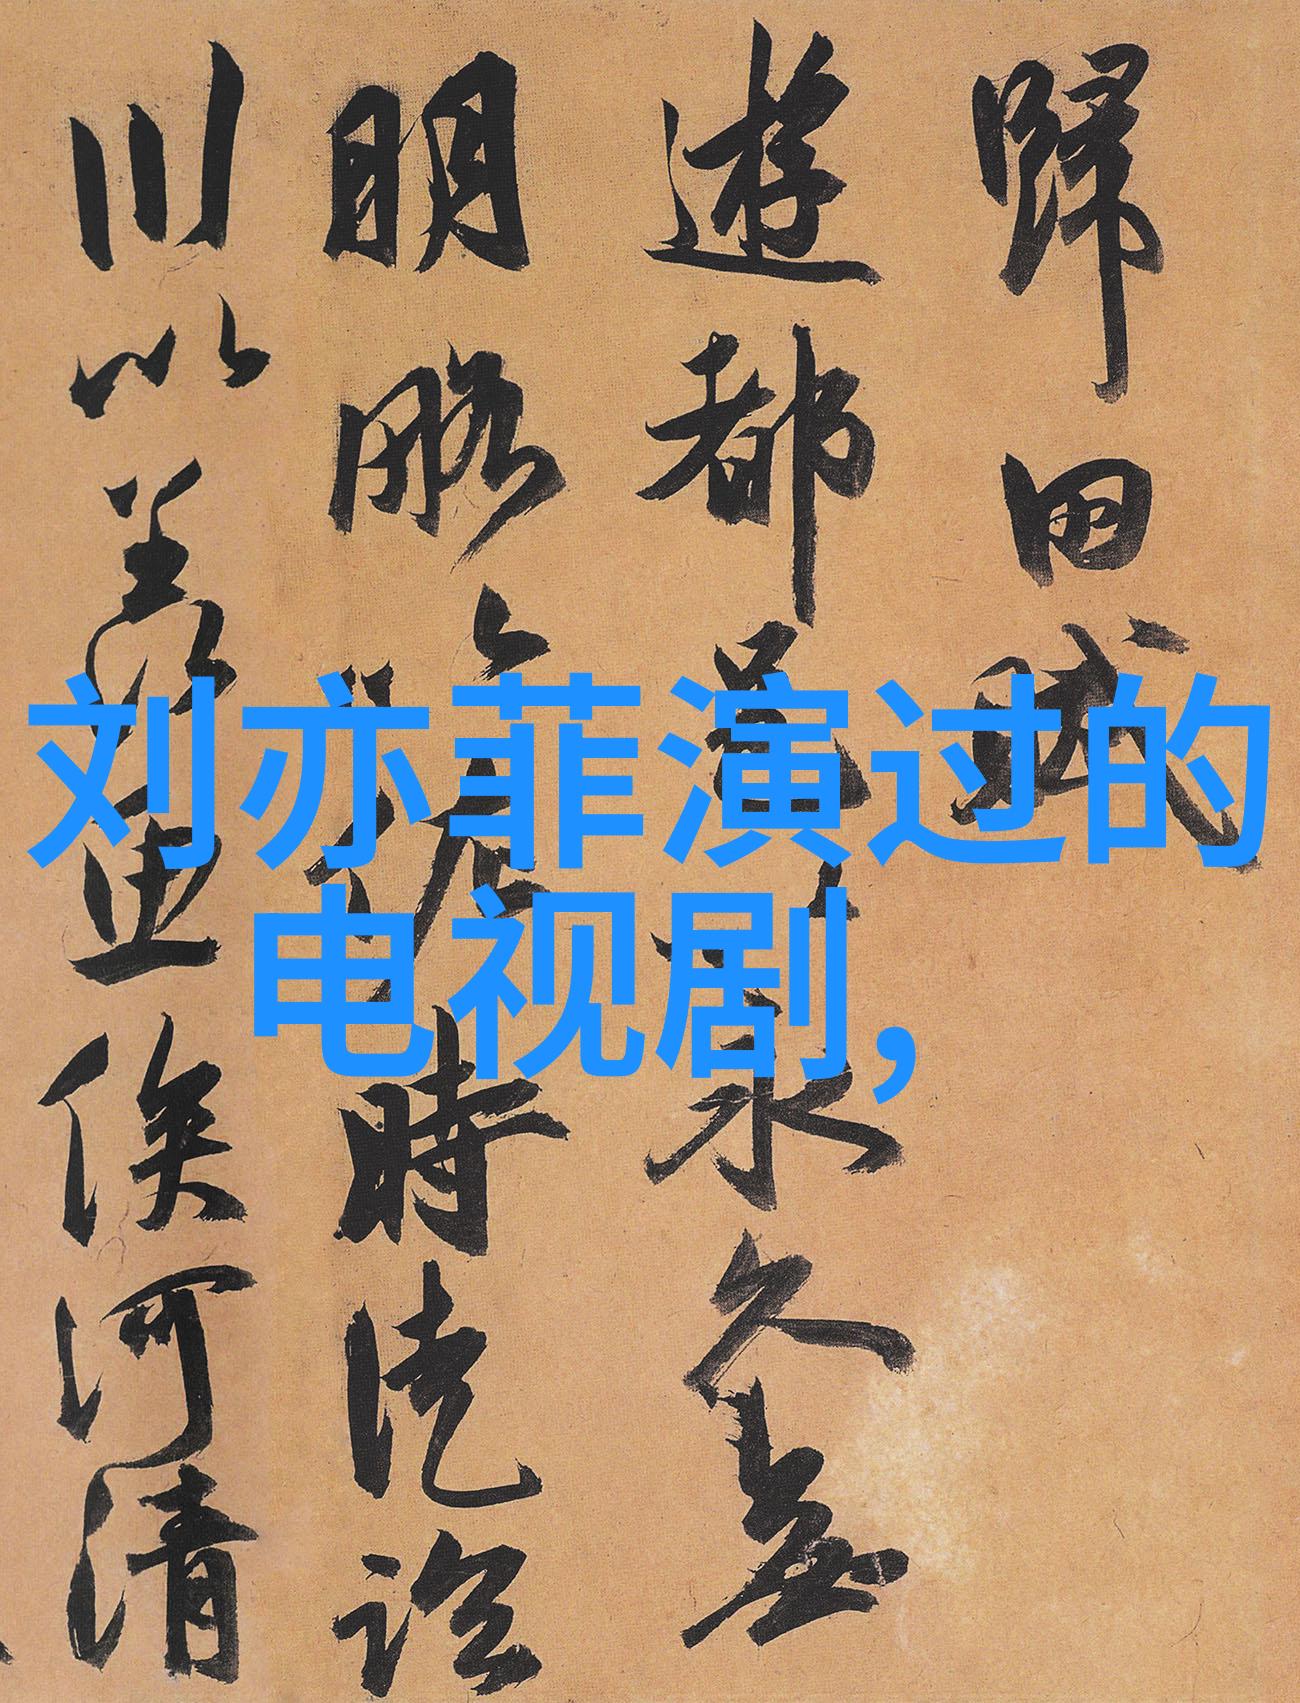 歸田賦
遊都邑以永久無
明略以佐時徒臨
川以羡魚俟河清
刘亦菲演过的
电视剧,